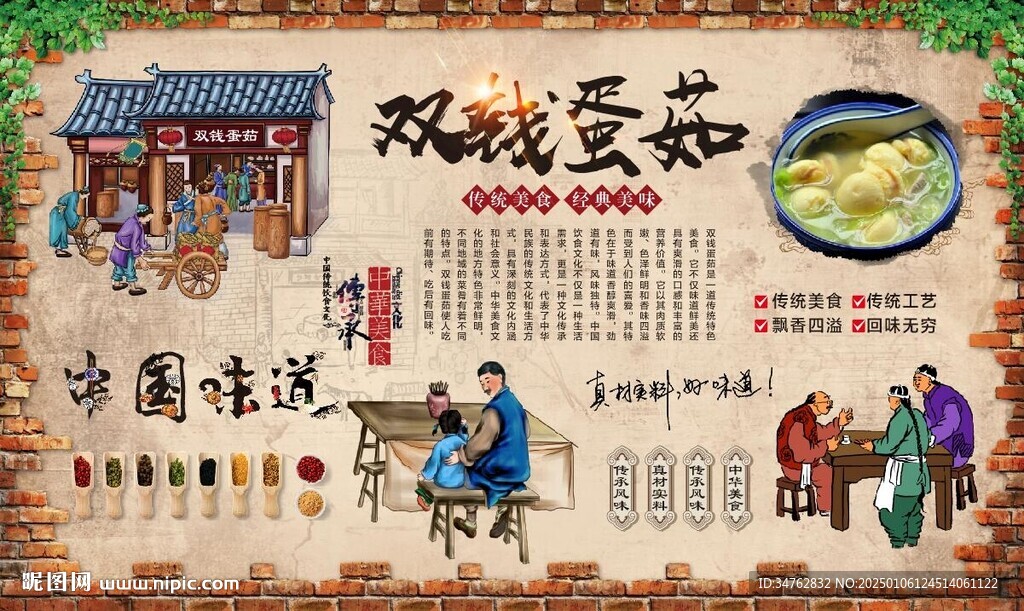 双钱蛋茹
双钱蛋茹
传统美食 经典美味
双钱蛋茹是一道传统特色
美食。它不仅味道鲜美还
具有爽滑的口感和丰富的
营养价值。它以其肉质软
嫩、色泽鲜明和香味四溢
而受到人们的喜爱。其特
色在于味道香醇爽滑，劲
道有味，风味独特。中国
饮食文化不仅是一种生活
需求，更是一种文化传承
和表达方式，代表了中华
民族的传统文化和生活方
式，具有深刻的文化内涵
和社会意义。中华美食文
化的地方特色非常鲜明，
不同地域的菜肴有着不同
的特点。双钱蛋茹使人吃
前有期待、吃后有回味。
传统美食 传统工艺
飘香四溢 回味无穷
中华美食
文化
传承
中国传统饮食文化
中国味道
真材实料，好味道！
传承风味
真材实料
传承风味
中华美食
昵图网 www.nipic.com
ID:34762832 NO:20250106124514061122